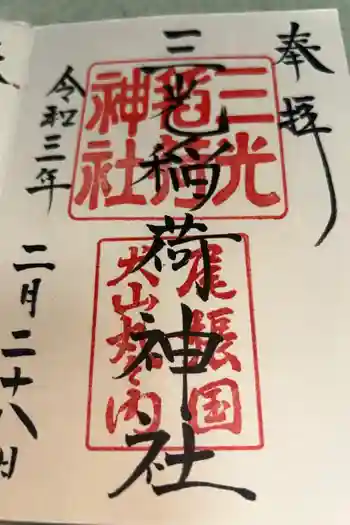 奉拝
三光稲荷神社
令和三年
二月二十八日
三光
稲荷
神社
尾張国
犬山城内